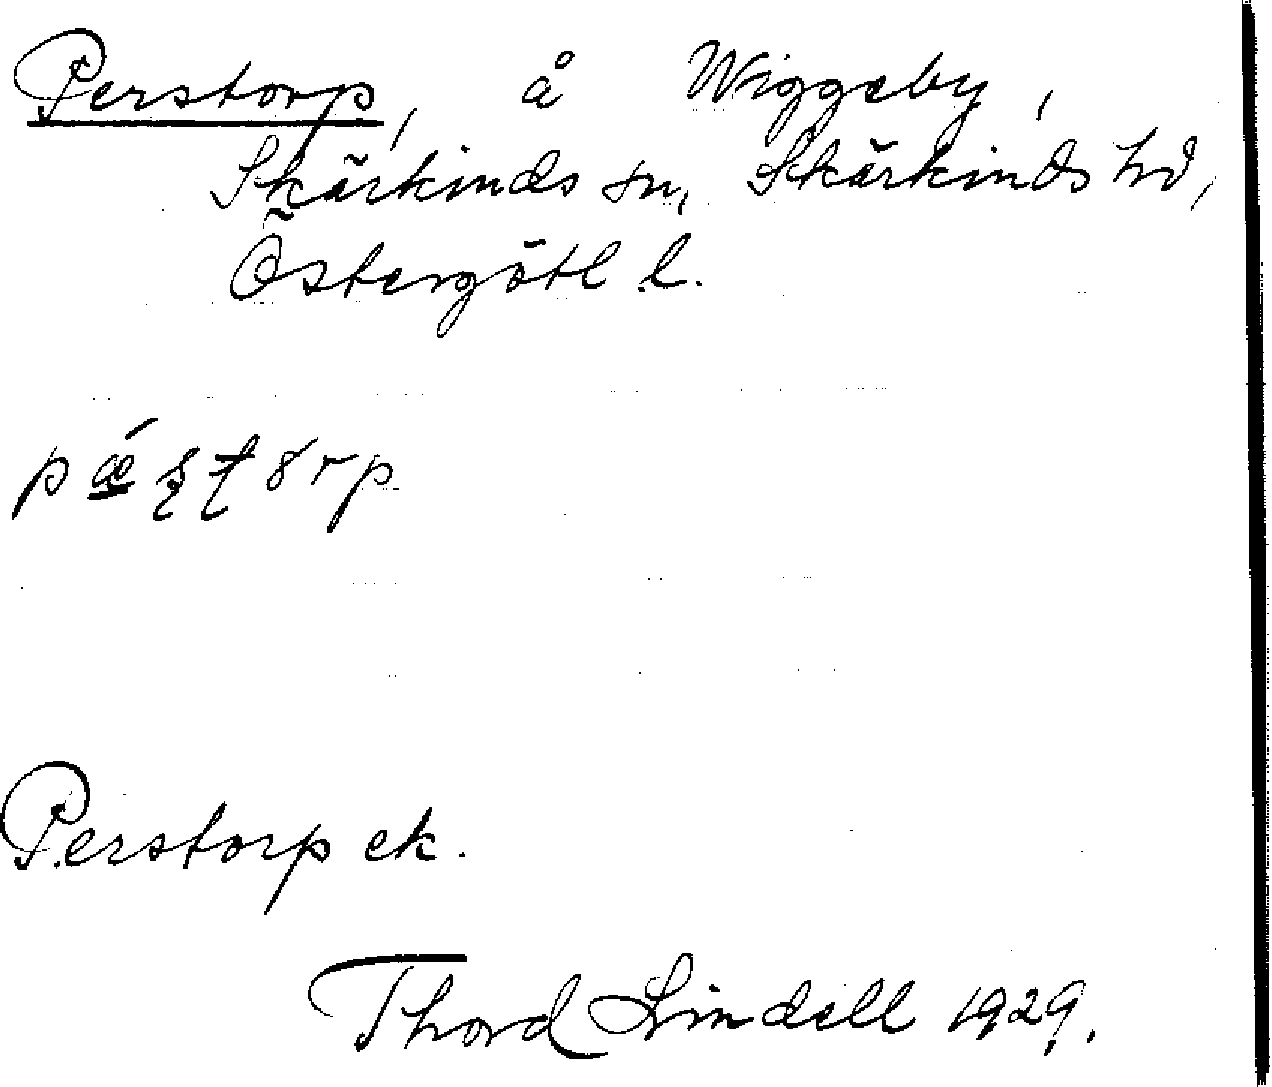 Perstorp, å Wiggeby,
Skärkinds sn, Skärkinds hd,
Östergötl l.
Perstorp ek.
Thord Lindell 1929.